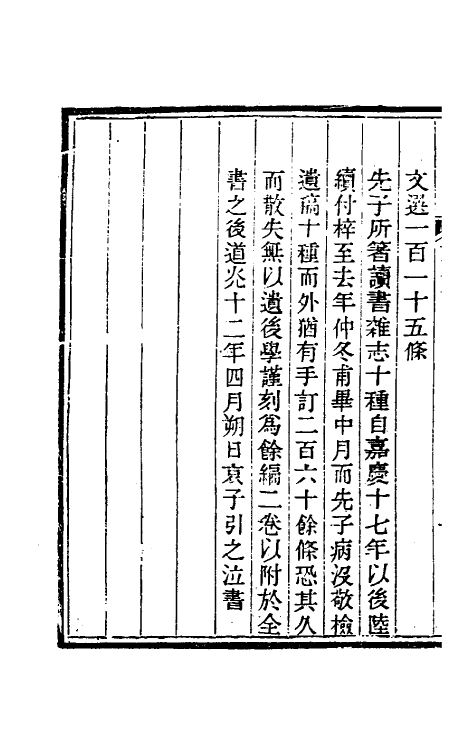 文選一百一十五條
先子所箸讀書雜志十種自嘉慶十七年以後陸
續付梓至去年仲冬甫畢中月而先子病沒敬檢
遺稿十種而外猶有手訂二百六十餘條恐其久
而散失無以遺後學謹刻爲餘編二卷以附於全
書之後道光十二年四月朔日哀子引之泣書